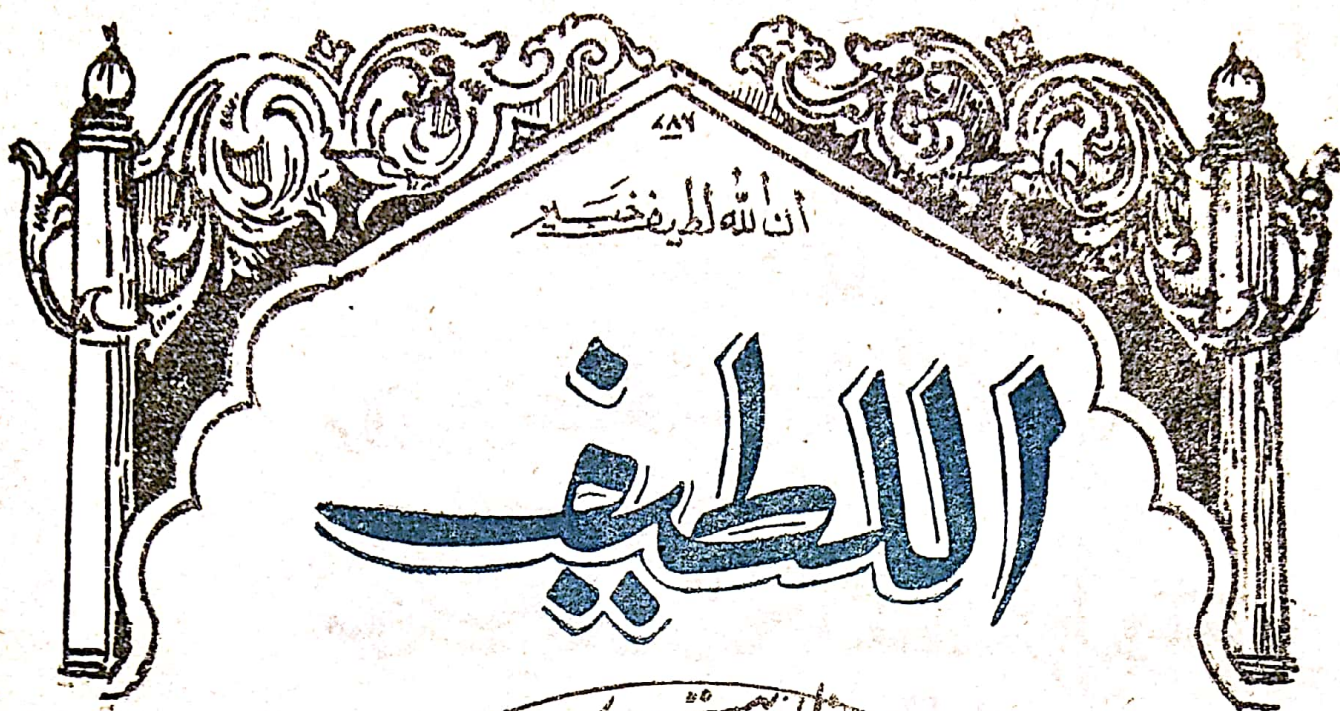 ۷۸۶
ان الله لطیف خبیر
اللطیف